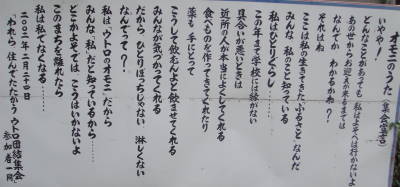 オモニのうた（集会宣言）
いやや！
どんなことがあっても 私はよそへは行かないよ
あの世からお迎えが来るまでは
なんでか わかるかね？
それはね
ここは私の生きてきたふるさと なんだ
みんな 私のこと知っている
私はひとりぐらし……
この年まで学校には縁がない
具合いが悪いときは
近所の人が本当によくしてくれる
食べものを作ってきてくれたり
薬も 手にとって
こうして飲むんよと飲ませてくれる
みんなが気づかってくれる
だから ひとりぼっちじゃない 淋しくない
なんてって？
私は "ウトロのオモニ" だから
みんな "私" だと知っているから……
どこかよそでは こうはいかないよ
このまちを離れたら
私は私でなくなる……
二〇〇二年二月二十四日
"われら 住んでたたかう" ウトロ団結集会
参加者一同